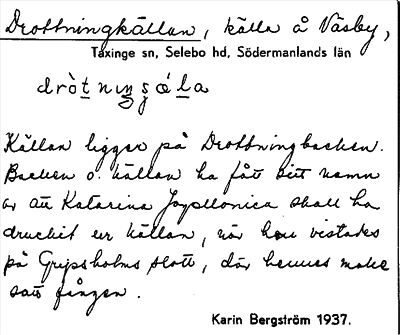 Drottningkällan, källa å Väsby,
Taxinge sn, Selebo hd, Södermanlands län
drò̀tnıŋsǫ́la
Källan ligger på Drottningbacken.
Backen o. källan ha fått sitt namn
av att Katarina Jagellonica skall ha
druckit ur källan, när hon vistades
på Gripsholms slott, där hennes make
satt fången.
Karin Bergström 1937.